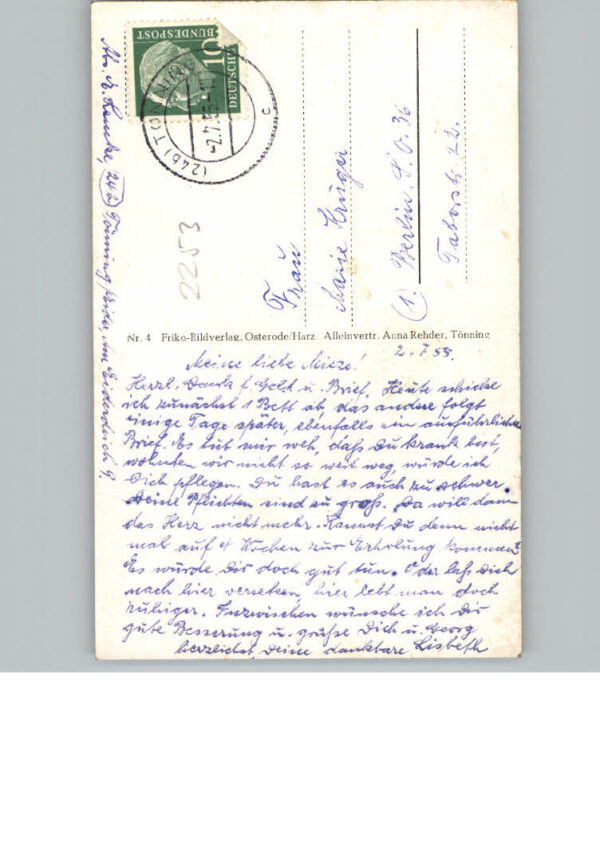 Meine liebe Mieze! 2.7.55.
Herzl. Dank f. Geld u. Brief. Heute schicke
ich zunächst 1 Bett ab, das andere folgt
einige Tage später, ebenfalls ein ausführlicher
Brief. Es tut mir weh, daß Du krank bist,
wohnten wir nicht so weit weg, würde ich
Dich pflegen. Du hast es auch zu schwer.
Deine Pflichten sind zu groß. Da will dann
das Herz nicht mehr. Kannst Du denn nicht
mal auf 4 Wochen zur Erholung kommen?
Es würde Dir doch gut tun. Oder laß Dich
nach hier versetzen, hier lebt man doch
ruhiger. Inzwischen wünsche ich Dir
gute Besserung u. grüße Dich u. Georg
herzlichst Deine dankbare Lisbeth
Nr. 4 Friko-Bildverlag, Osterode/Harz Alleinvertr. Anna Rehder, Tönning
Frau
Marie Krüger
(1) Berlin S.O. 36
Taborstr. 22.
DEUTSCHE
BUNDESPOST
10
(24b) TÖNNING
-2.7.55
c
2253
Abs. Lemke, 24b Tönning/Eider, Am Eiderdeich 9.